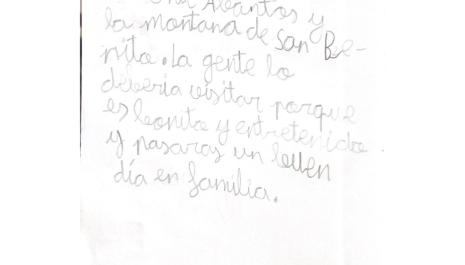 Abantos y
la montaña de San Be-
nito. La gente lo
deberia visitar porque
es bonito y entretenido
y pasaras un buen
día en familia.